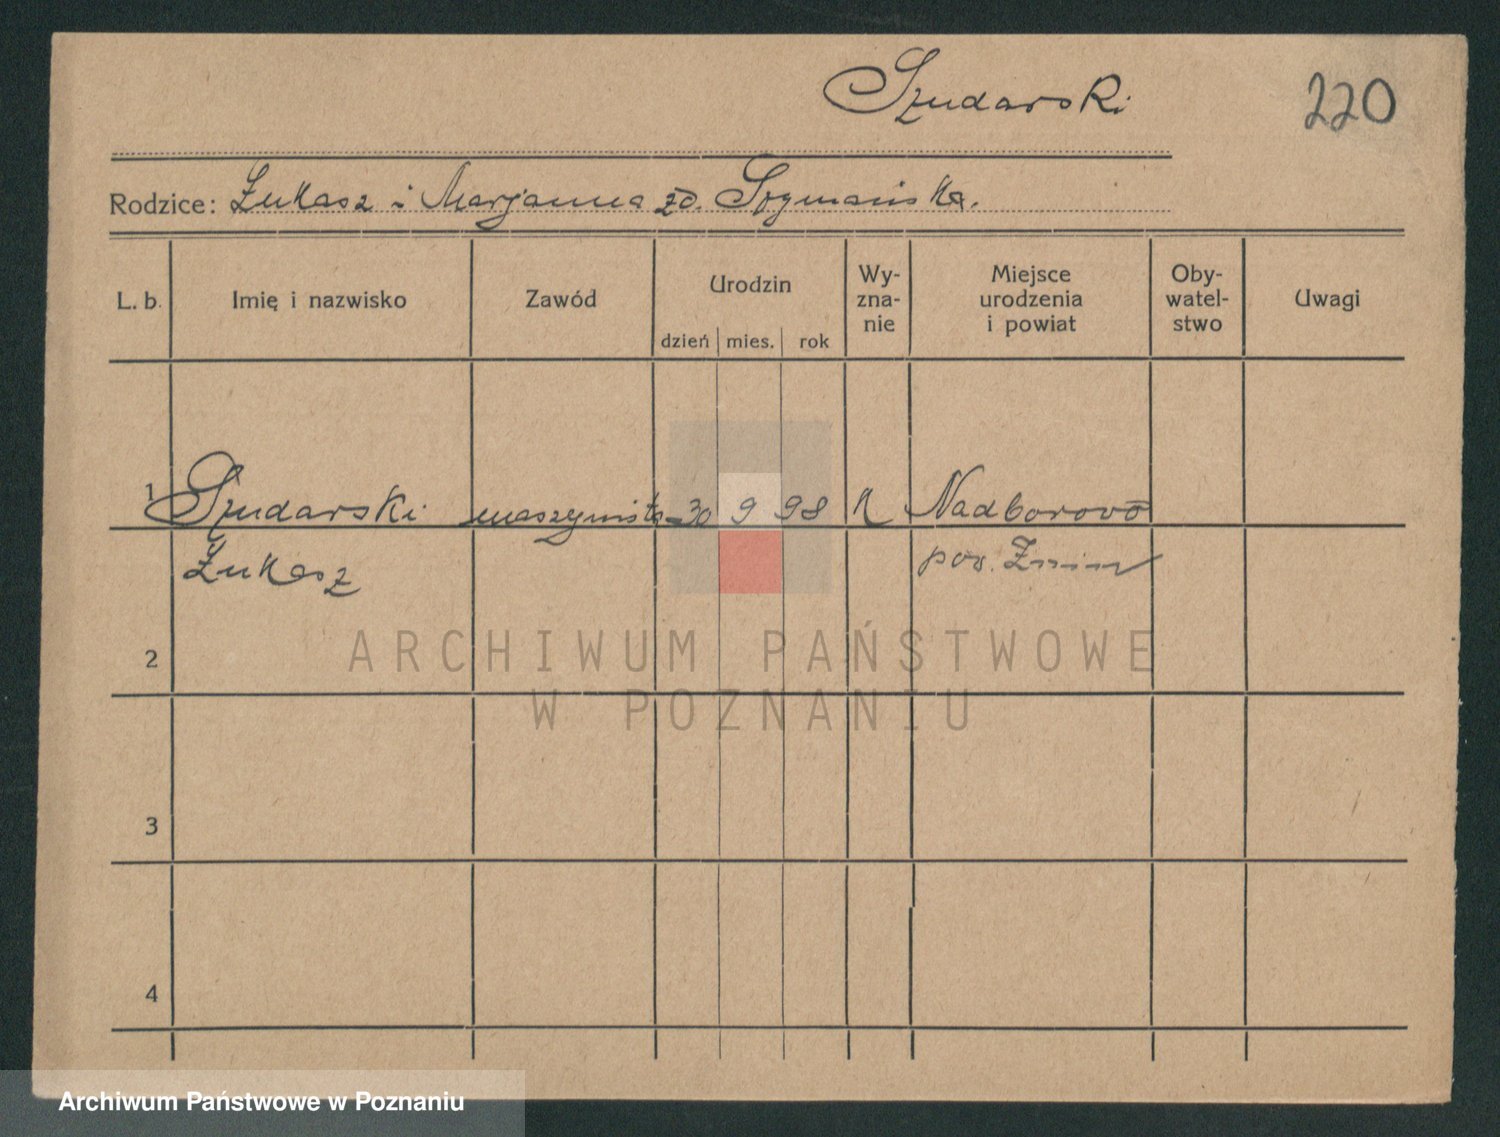 Szudarski
220
Rodzice: Łukasz i Marjanna zd. Szymańska.
L. b. Imię i nazwisko Zawód Urodzin dzień mies. rok Wy-zna-nie Miejsce urodzenia i powiat Oby-watel-stwo Uwagi
1 Szudarski maszynista 30 9 98 K Nadborowo
Łukasz pow. Żnin
2
ARCHIWUM PAŃSTWOWE
W POZNANIU
3
4
Archiwum Państwowe w Poznaniu